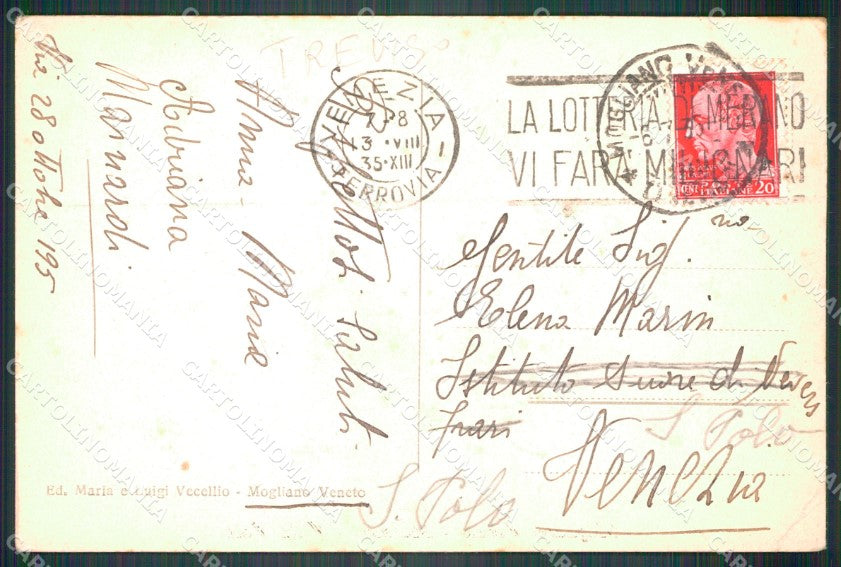 TREVISO
VENEZIA
7-8
13 · VIII
35·XIII
FERROVIA
MOGLIANO VENETO
LA LOTTERIA DI MERANO
VI FARÀ MILIONARI
CENT
20
Affettosi saluti
Anna - Maria
Adriana
Manaroli
Via 28 ottobre 195
Gentile Sig.na
Elena Marin
Istituto Suore di
Frari
S. Polo
Venezia
S. Polo
Ed. Maria e Luigi Vecellio - Mogliano Veneto
CARTOLINOMANIA